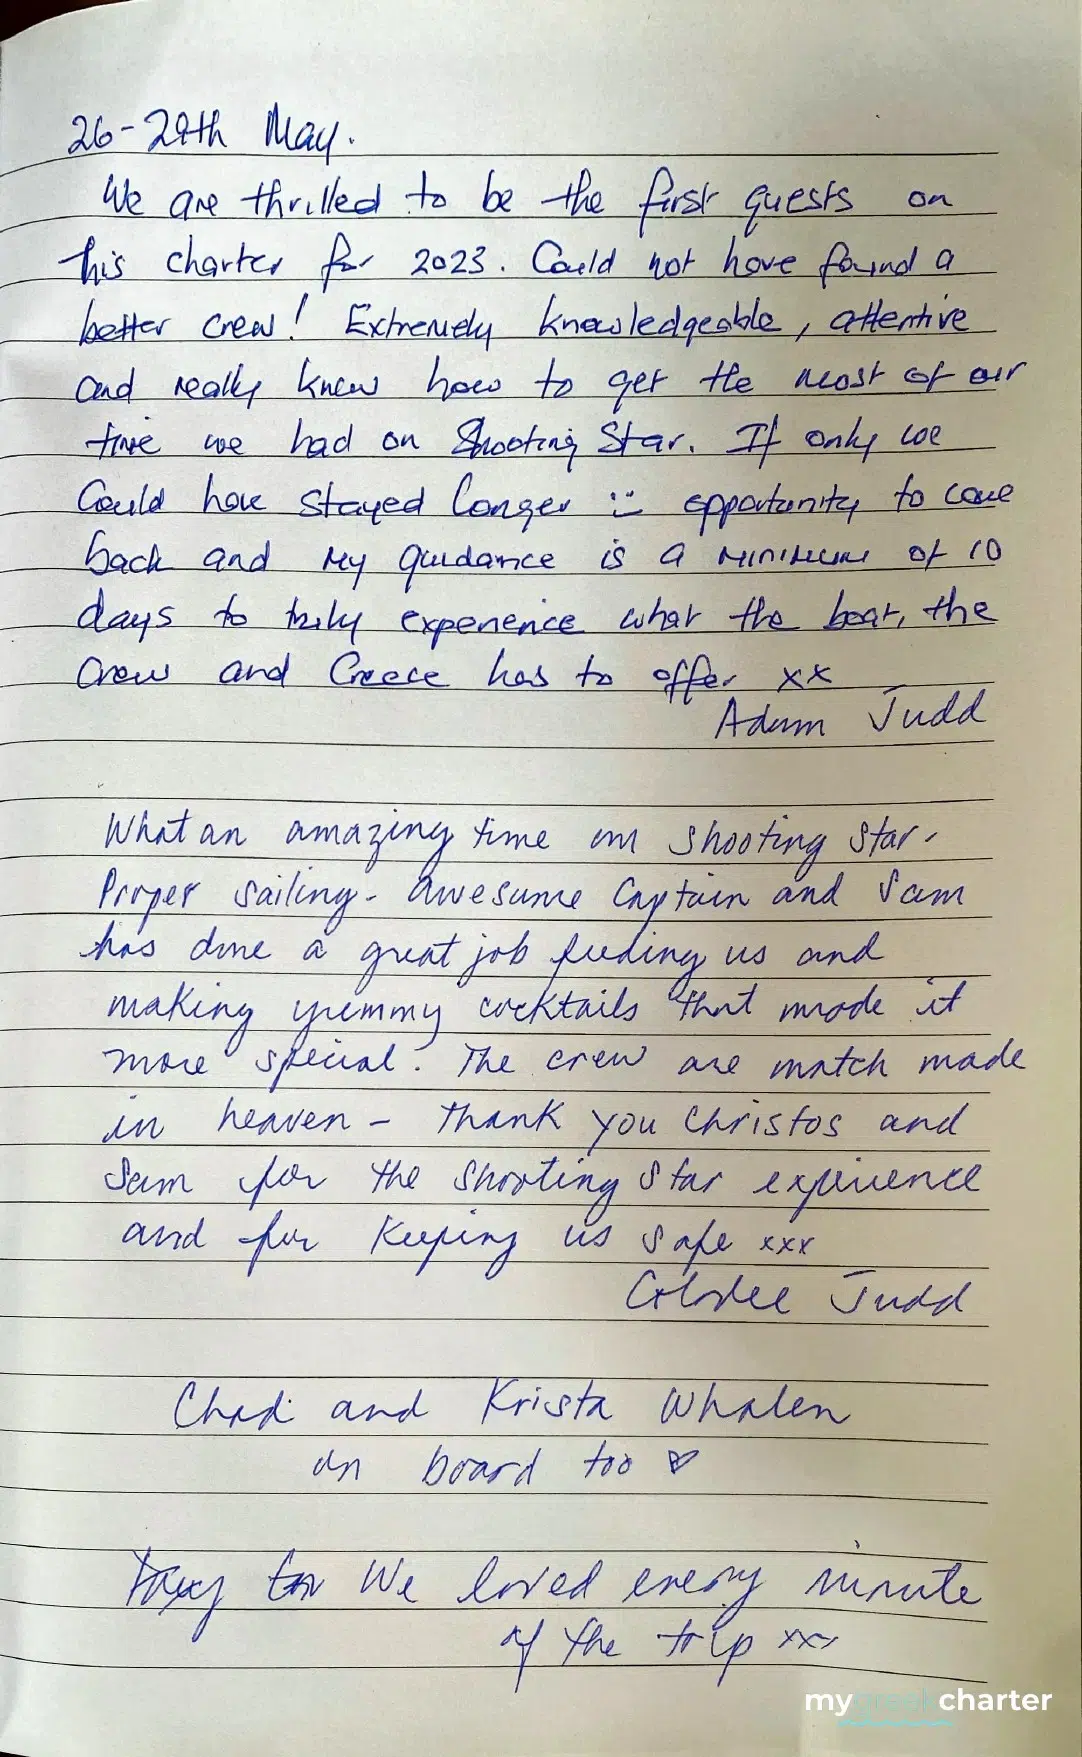 26-29th May.
We are thrilled to be the first guests on
this charter for 2023. Could not have found a
better crew! Extremely knowledgeable, attentive
and really knew how to get the most of our
time we had on Shooting Star. If only we
Could have stayed longer :) opportunity to come
back and my guidance is a minimum of 10
days to truly experience what the boat, the
crew and Greece has to offer xx
Adam Judd
What an amazing time on Shooting Star.
Proper sailing - awesume Captain and Sam
has done a great job feeding us and
making yummy cocktails that made it
more special. The crew are match made
in heaven - Thank you Christos and
Sam for the Shooting Star experience
and for keeping us safe xxx
Judd
Chadi and Krista Whalen
on board too ♡
We loved every minute
of the trip xxx
mygreekcharter